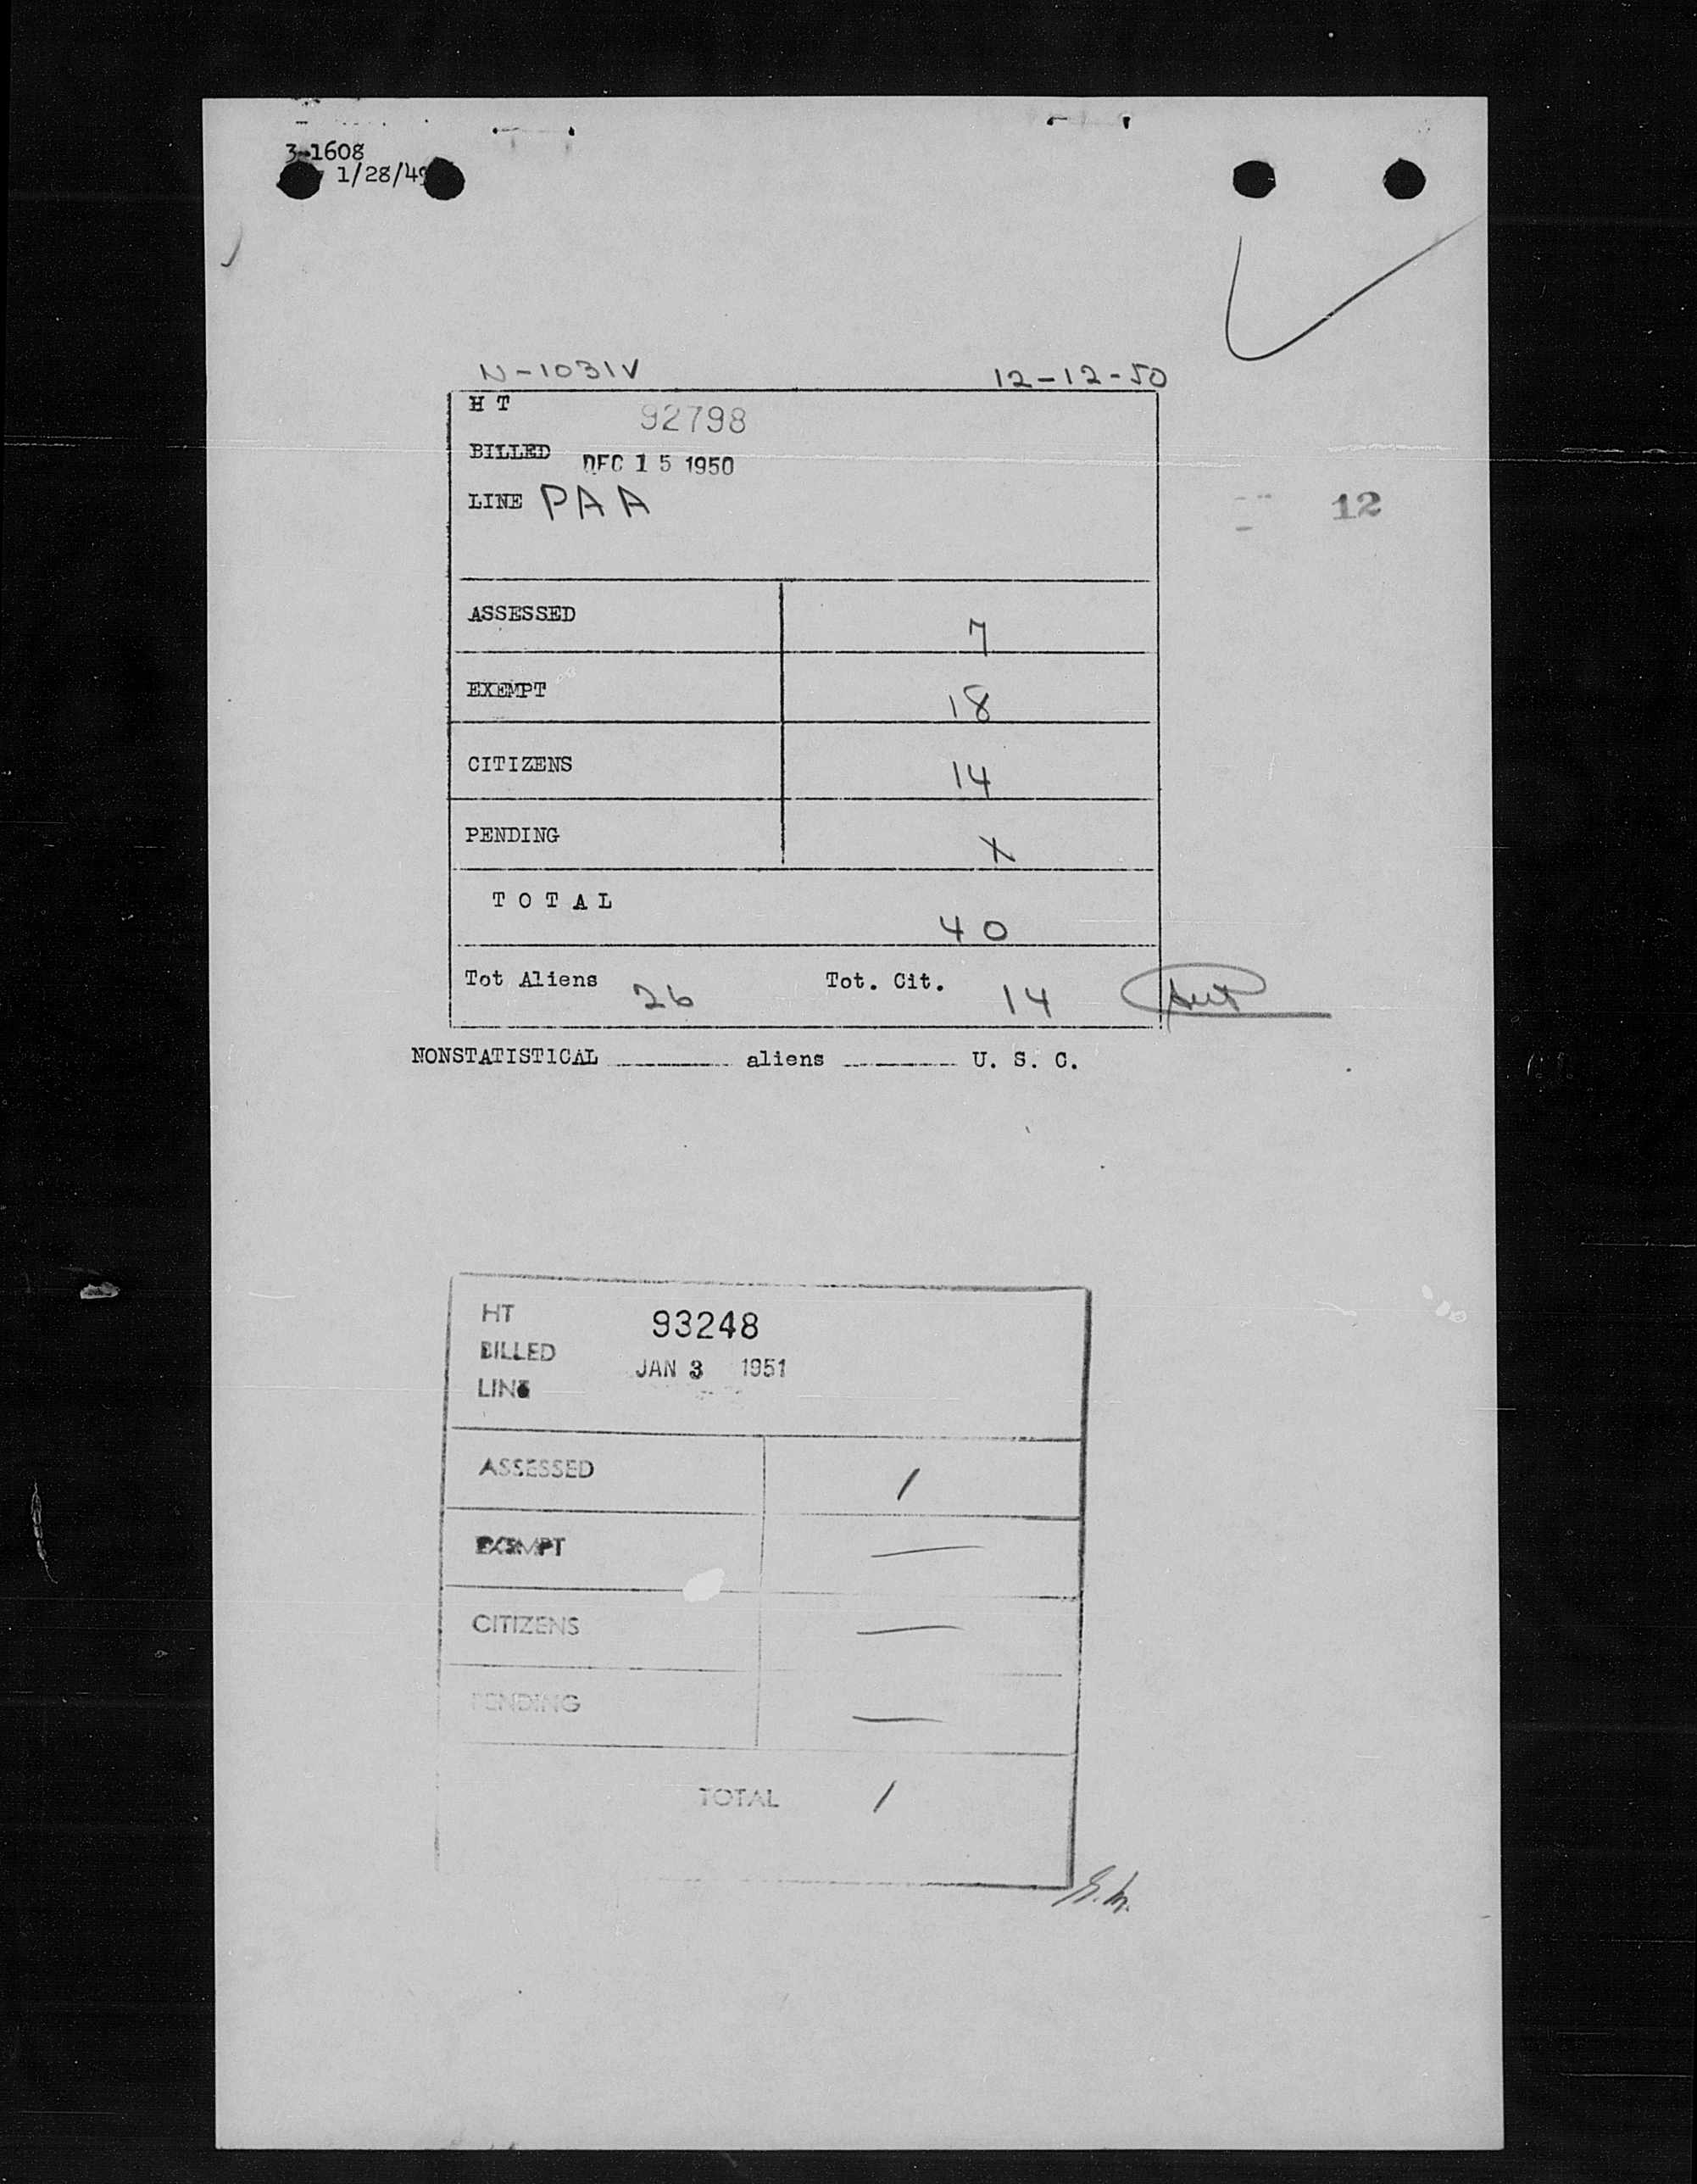 3-1608
1/28/49
N-1031V 12-12-50
H T 92798
BILLED DEC 15 1950
LINE PAA
12
ASSESSED 7
EXEMPT 18
CITIZENS 14
PENDING X
TOTAL 40
Tot Aliens 26 Tot. Cit. 14
NONSTATISTICAL aliens U. S. C.
HT 93248
BILLED JAN 3 1951
LINE
ASSESSED 1
EXEMPT —
CITIZENS —
PENDING —
TOTAL 1